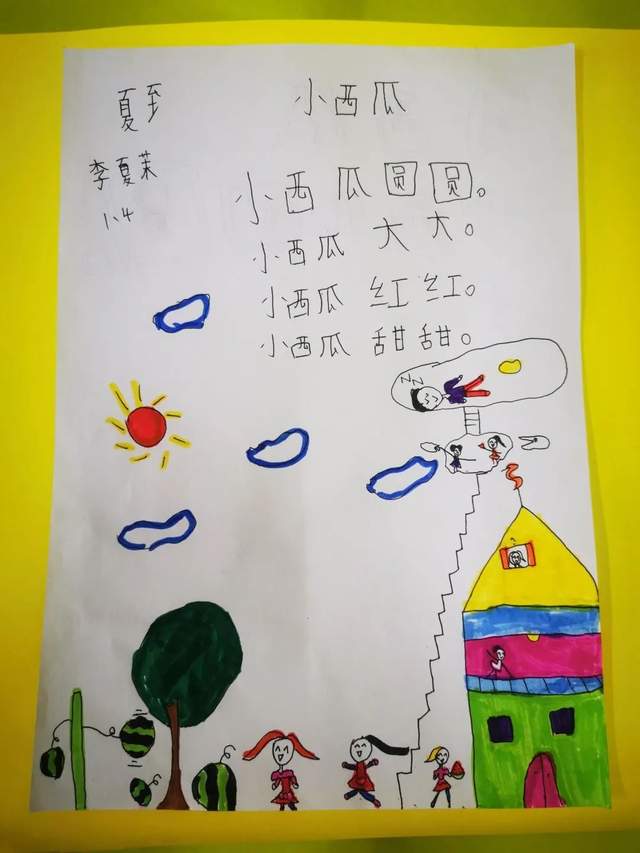 小西瓜
夏至
李夏茉
1、4
小西瓜圆圆。
小西瓜大大。
小西瓜红红。
小西瓜甜甜。
zz